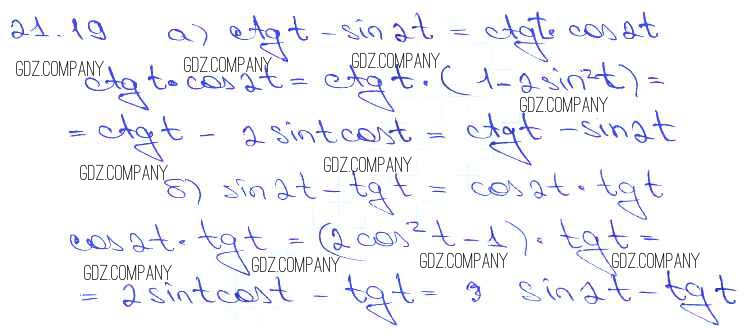 21.19 а) ctg t - sin 2t = ctgt · cos 2t
GDZ.COMPANY GDZ.COMPANY GDZ.COMPANY
ctg t · cos 2t = ctg t · (1 - 2 sin²t) =
GDZ.COMPANY
= ctgt - 2 sint cost = ctgt - sin2t
GDZ.COMPANY GDZ.COMPANY
б) sin 2t - tg t = cos 2t · tgt
cos 2t · tgt = (2cos²t - 1) · tgt =
GDZ.COMPANY GDZ.COMPANY GDZ.COMPANY GDZ.COMPANY
= 2 sint cost - tgt = sin2t - tgt